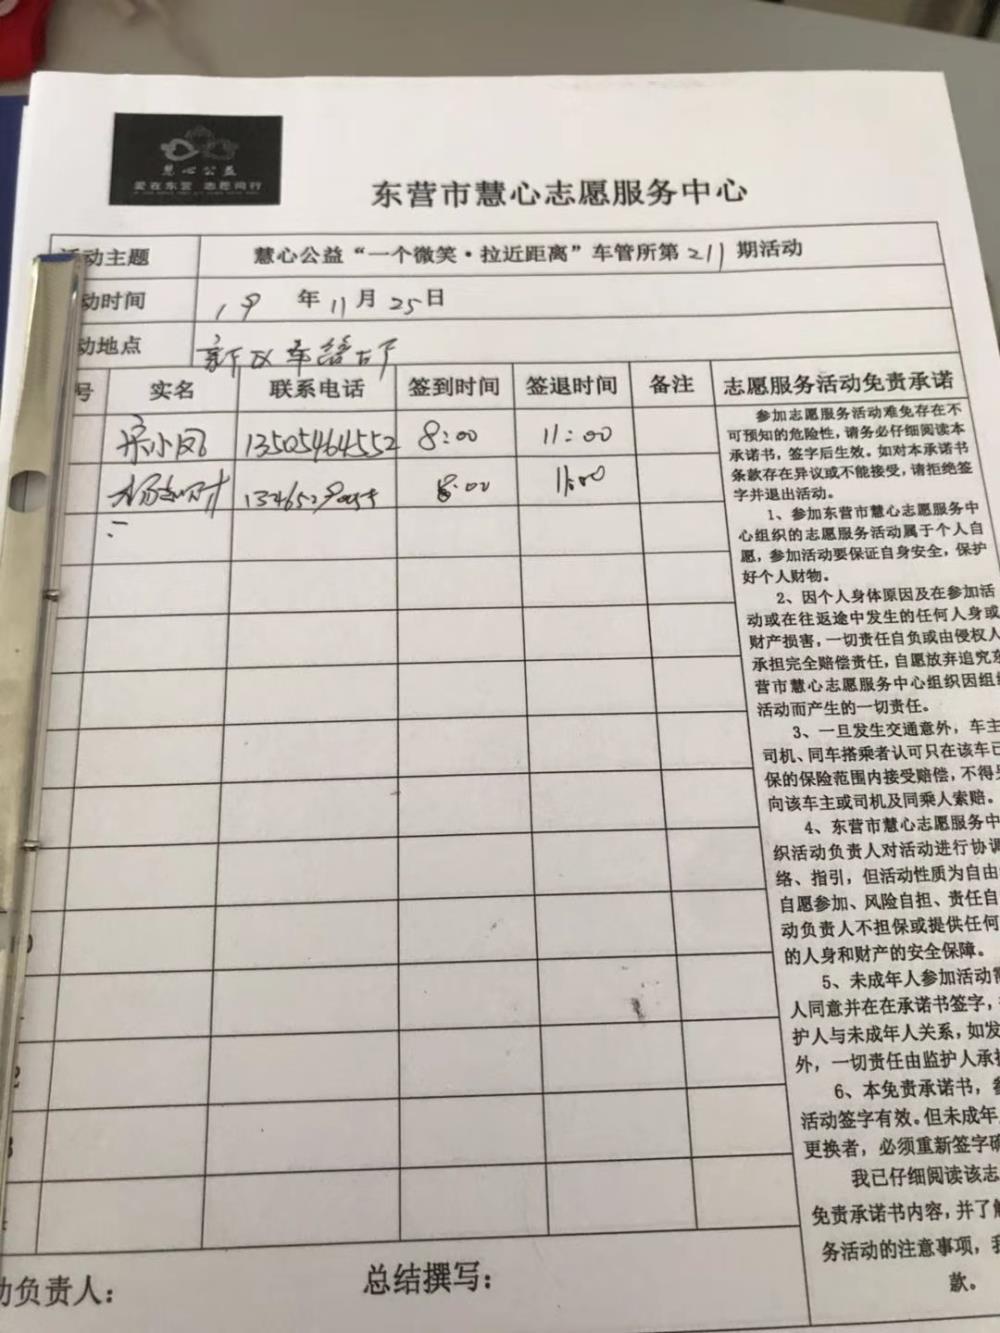 慧心公益
爱在东营 志愿同行
东营市慧心志愿服务中心
活动主题 慧心公益“一个微笑·拉近距离”车管所第211期活动
动时间 19 年 11 月 25 日
动地点 新区车管所
号 实名 联系电话 签到时间 签退时间 备注 志愿服务活动免责承诺
宋小凤 13505464552 8:00 11:00
8:00 11:00
参加志愿服务活动难免存在不
可预知的危险性，请务必仔细阅读本
承诺书，签字后生效。如对本承诺书
条款存在异议或不能接受，请拒绝签
字并退出活动。
1、参加东营市慧心志愿服务中
心组织的志愿服务活动属于个人自
愿，参加活动要保证自身安全，保护
好个人财物。
2、因个人身体原因及在参加活
动或在往返途中发生的任何人身或
财产损害，一切责任自负或由侵权人
承担完全赔偿责任，自愿放弃追究东
营市慧心志愿服务中心组织因组织
活动而产生的一切责任。
3、一旦发生交通意外，车主
司机、同车搭乘者认可只在该车已
保的保险范围内接受赔偿，不得另
向该车主或司机及同乘人索赔。
4、东营市慧心志愿服务中
织活动负责人对活动进行协调
络、指引，但活动性质为自由
自愿参加、风险自担、责任自
动负责人不担保或提供任何
的人身和财产的安全保障。
5、未成年人参加活动需
人同意并在在承诺书签字，
护人与未成年人关系，如发
外，一切责任由监护人承担
6、本免责承诺书，参
活动签字有效。但未成年
更换者，必须重新签字确
我已仔细阅读该志
免责承诺书内容，并了解
务活动的注意事项，我
款。
动负责人： 总结撰写：